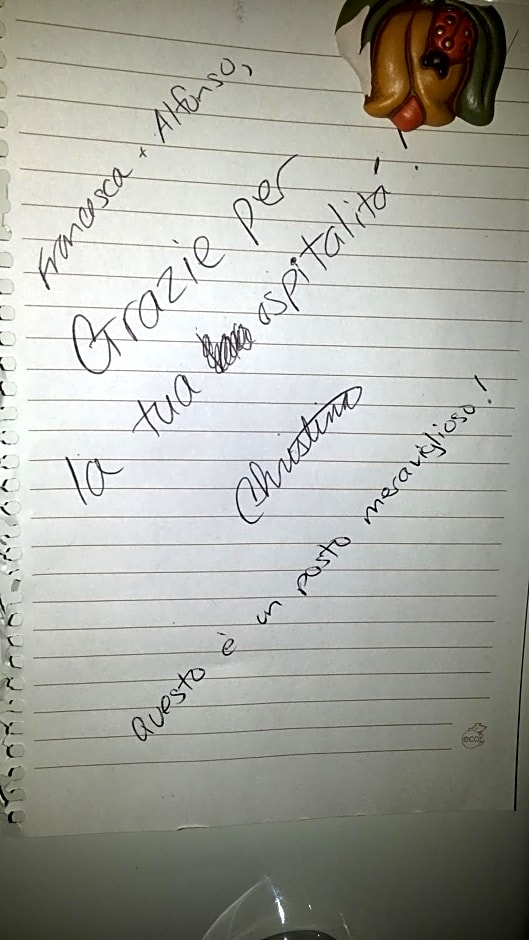 Francesca + Alfonso,
Grazie per
la tua ospitalitá!
Christina
questo è un posto meraviglioso!
eco